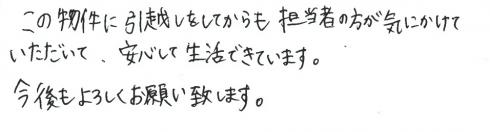 この物件に引越しをしてからも担当者の方が気にかけて
いただいて、安心して生活できています。
今後もよろしくお願い致します。